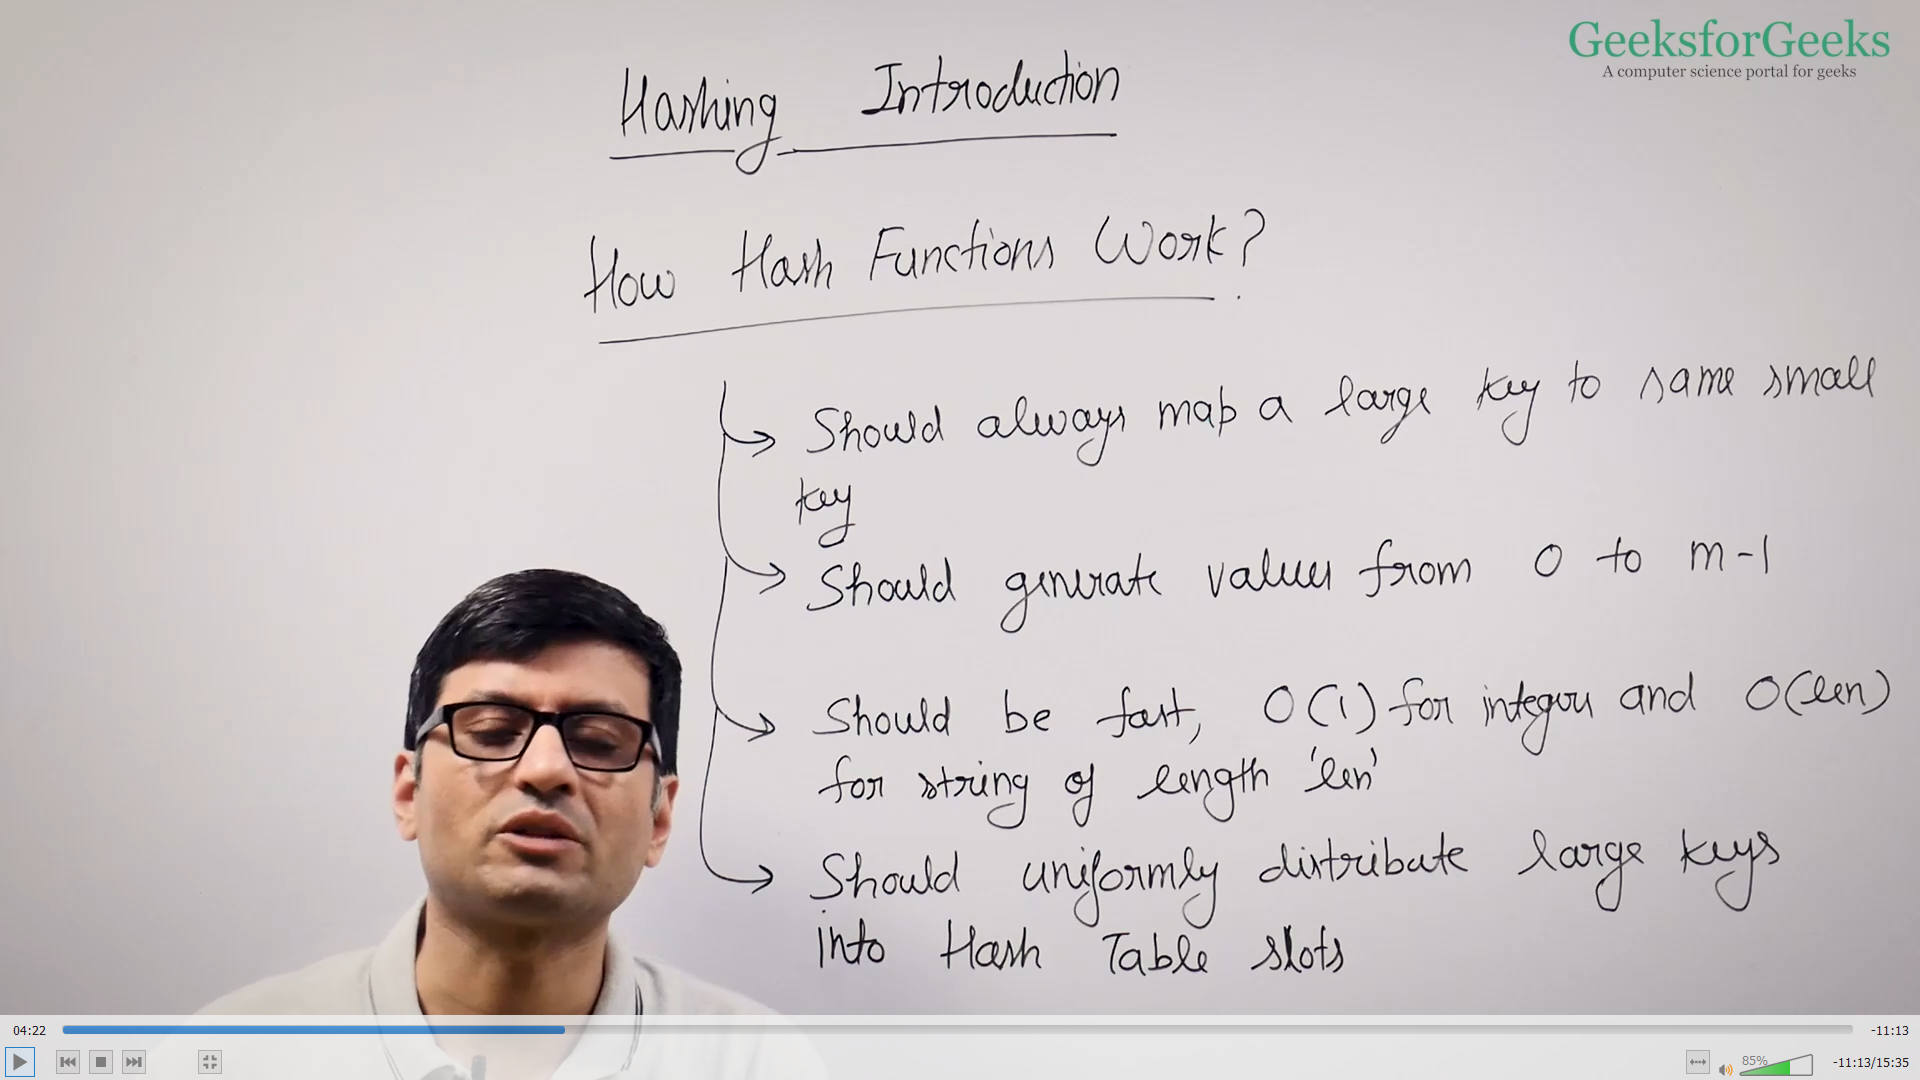 GeeksforGeeks
A computer science portal for geeks
Hashing Introduction
How Hash Functions Work?
Should always map a large key to same small
key
Should generate values from 0 to m-1
Should be fast, O(1) for integers and O(len)
for string of length 'len'
Should uniformly distribute large keys
into Hash Table slots
04:22
-11:13
85%
-11:13/15:35